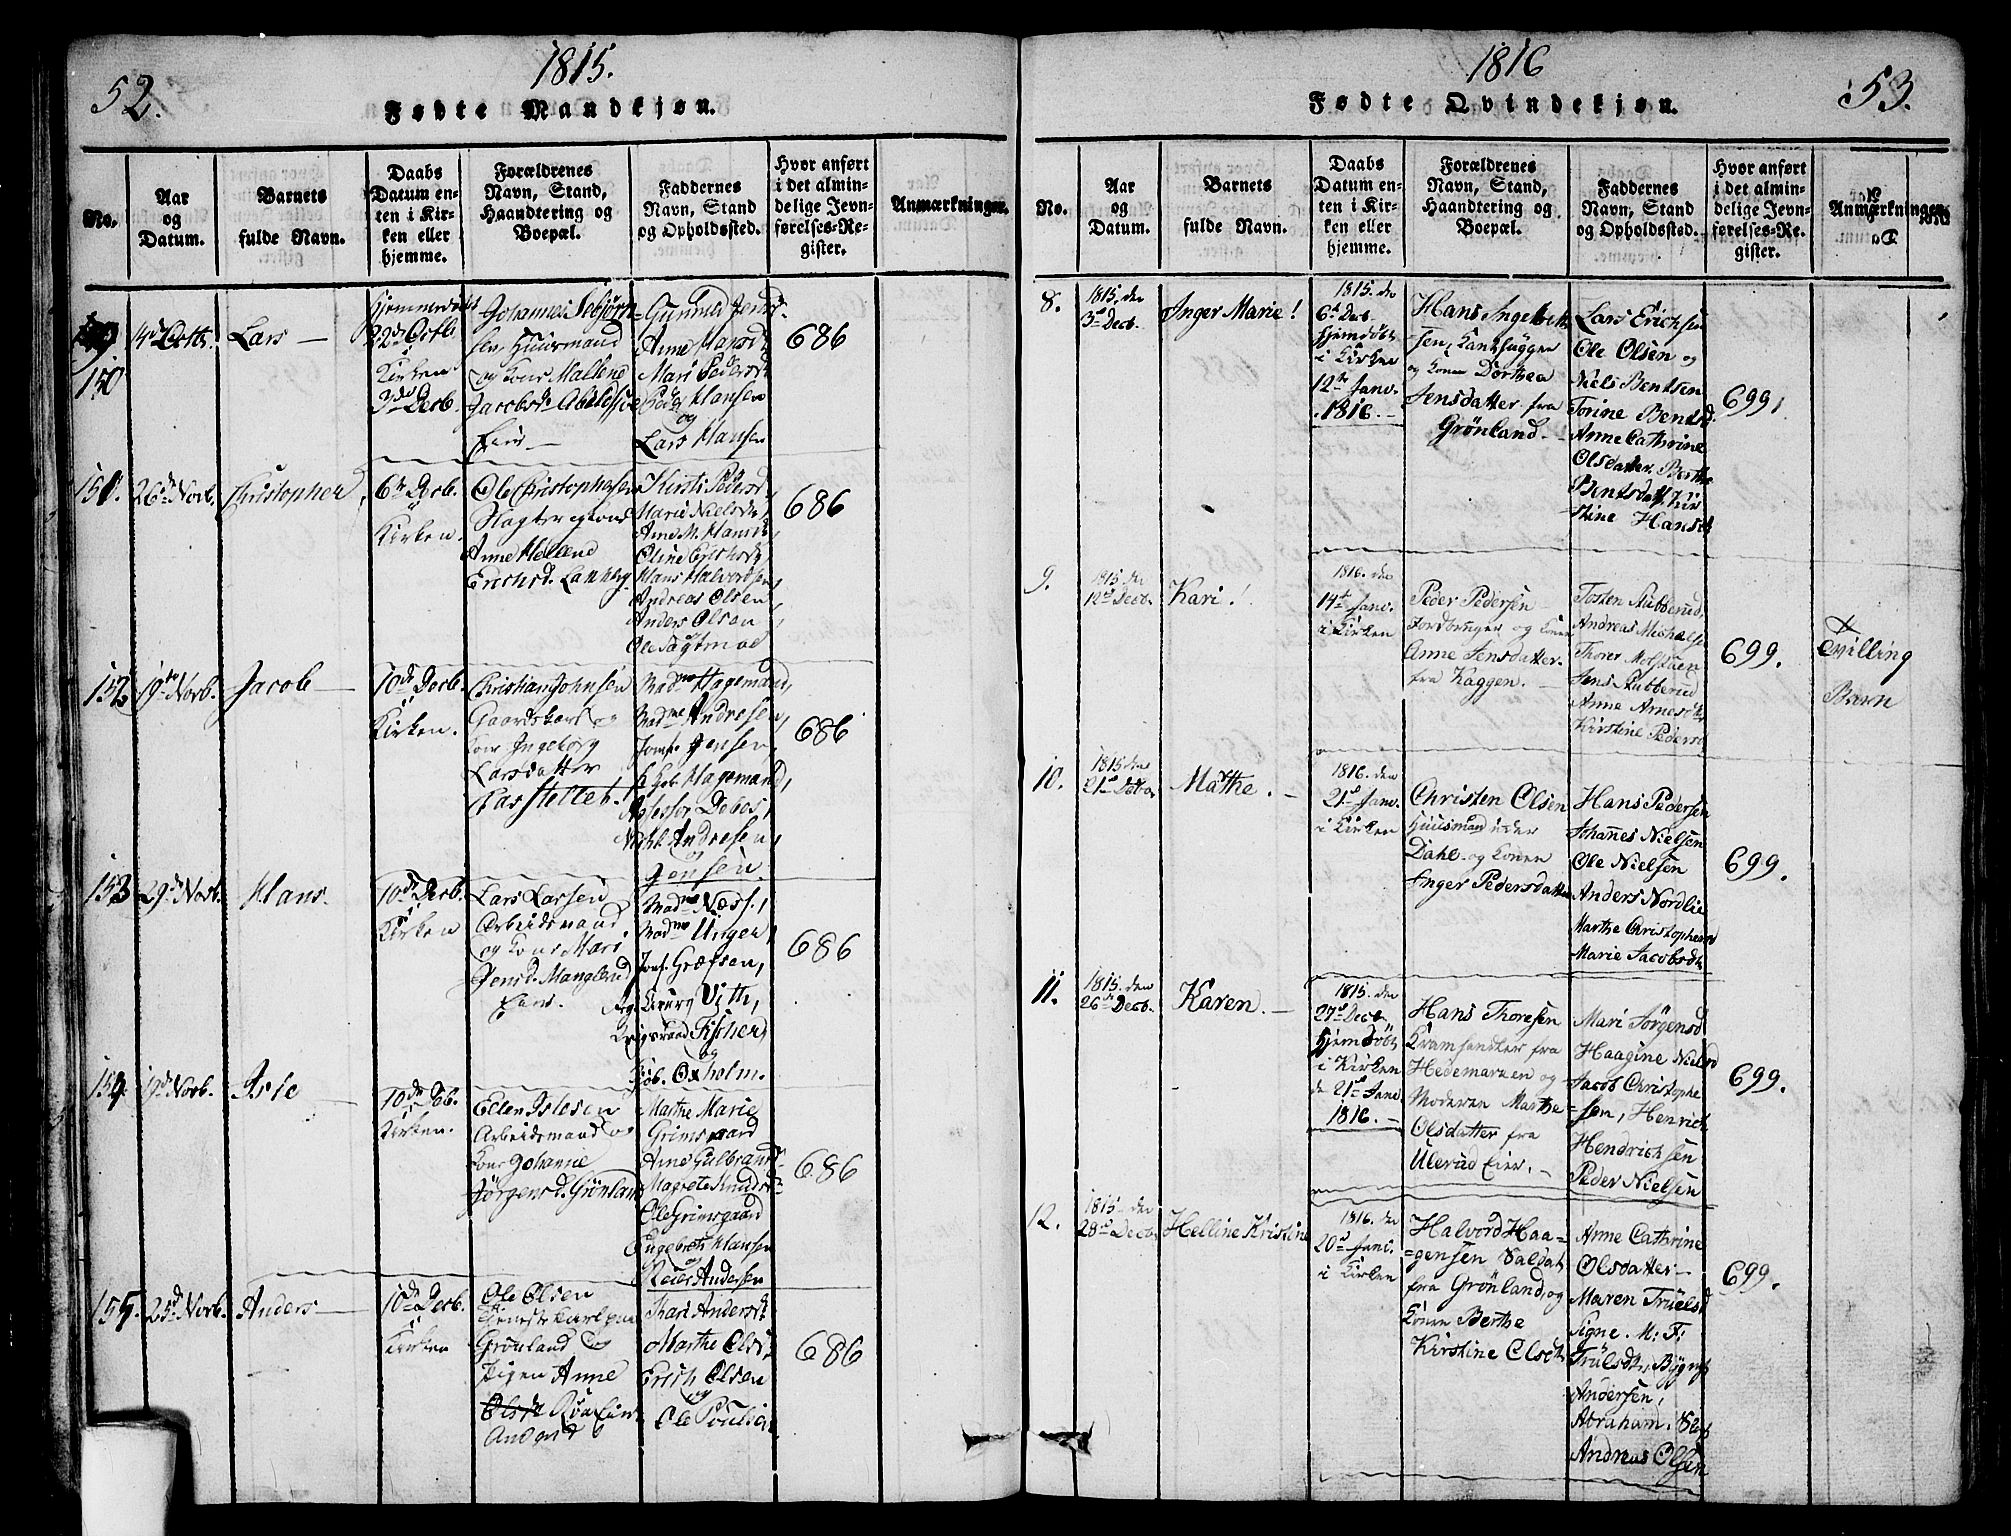 52.
1815.
Fødte Mandkjøn.
No.
Aar
og
Datum.
Barnets
fulde Navn.
Daabs
Datum en-
ten i Kir-
ken eller
hjemme.
Forældrenes
Navn, Stand,
Haandtering og
Boepæl.
Faddernes
Navn, Stand
og Opholdssted.
Hvor anført
i det almin-
delige Jevn-
førelses-Re-
gister.
Anmærkninger.
150
Lars —
22de Octbr
i
Kirken
3die Decb.
Huusmand
og Kone Mallene
Anne Larsd.
Mari Pedersd.
Peder Hansen
og
Lars Hansen
686
151.
26de Novb.
Christopher
6te Decb.
i
Kirken.
Ole Christophersen
Slagter og Kone
Anne Mallene
Erichsd. Lakkeg.
Kirsti Pedersd.,
Marie Nielsdr,
Anne M. Hansd.,
Oline Erichsd,
Hans Halvordsen,
Andreas Olsen,
Anders Olsen
686
152
19de Novb.
Jacob —
10de Decb.
i
Kirken.
Christian Johnsen
Gaardskarl og
Kone Ingeborg
Larsdatter
Madme Hagemand,
Madme Andresen,
Jomf. Jensen,
Hagemand,
Assessor Debes,
Andresen,
og
Jensen.
686
153
29de Novb.
Hans.
10de Decb.
i
Kirken
Lars Larsen
Arbeidsmand
og Kone Mari
Jensd. Manglerud
Eier.
Madme Næss,
Madme Unger,
Jomf. Græfsen,
Vith,
Krigsraad Fischer,
og
Oxholm.
686
154
19de Novb.
Isle —
10de Decb.
i
Kirken.
Ellen Islesen
Arbeidsmand og
Kone Johanne
Jørgensd. Grønland
Marthe Marie
Grimsgaard
Anne Gulbrandsd.
Magrete Knudsd.
Ole Grimsgaard
Engebret Hansen
og
Reier Andersen
686
155.
25de Novb.
Anders —
10de Decb.
i
Kirken
Ole Olsen
Tjenestekarl paa
Grønland og
Pigen Anne
Kari Andersd.
Marthe Olsd.
Erich Olsen
og
Ole Poulsen
686
1816
53.
Fødte Qvindekjøn.
No.
Aar
og
Datum.
Barnets
fulde Navn.
Daabs
Datum en-
ten i Kir-
ken eller
hjemme.
Forældrenes
Navn, Stand,
Haandtering og
Boepæl.
Faddernes
Navn, Stand
og Opholdssted.
Hvor anført
i det almin-
delige Jevn-
førelses-Re-
gister.
Anmærkninger.
8.
1815. den
3d Decb.
Inger Marie!
1815. den
6te Decb.
hjemdøbt
i Kirken
12te Janv.
1816. —
Hans Ingebreth-
sen, Tankhugger
og Konen Dorthea
Jensdatter fra
Grønland. —
Lars Erichsen
Ole Olsen og
Niels Bentsen
Torine Bentsd.
Anne Cathrine
Olsdatter. Berthe
Bentsdatt. Kir-
stine Hansdt
699.
9.
1815 den
12te Decb.
Kari!
1816. den
14de Janv.
i Kirken
Peder Pedersen
Jordbruger og Konen
Anne Jensdatter
fra Kaggen. —
Tosten Stubberud,
Andreas Michelsen
Thorer Molstaen
Jens Stubberud
Anne Arnesdt.
Kirstine Pedersd
699.
Tvilling
Barn
10.
1815 den
21de Decbr
Mathe. —
1816. den
21de Janv.
i Kirken
Christen Olsen
Huusmand under
Dahl og Konen
Inger Pedersdatter
Hans Pedersen
Johannes Nielsen
Ole Nielsen
Anders Nordlie
Marthe Christophersd
Marie Jacobsdt
699.
11.
1815. den
26de Decb.
Karen. —
1815. den
27de Decb
hjemdøbt
i Kirken
d 21de Janv.
1816. —
Hans Thoresen
Kramhandler fra
Hedemarken og
Moderen Marthe
Olsdatter fra
Ulerud Eier. —
Mari Jørgensd
Haagine Nielsd
Jacob Christophe-
=sen, Henrich
Hendrichsen
Peder Nielsen
699.
12.
1815. den
28de Decbr
Helline Kristine
1816. den
20de Janv.
i Kirken
Halvord Haa-
=gensen Saldat
fra Grønland, og
Konen Berthe
Kirstine Olsdt.
Anne Cathrine
Olsdatter —
Maren Truelsd
Signe. M: F:
Trulsdt.
Andersen,
Abraham.
Andreas Olsen
699.